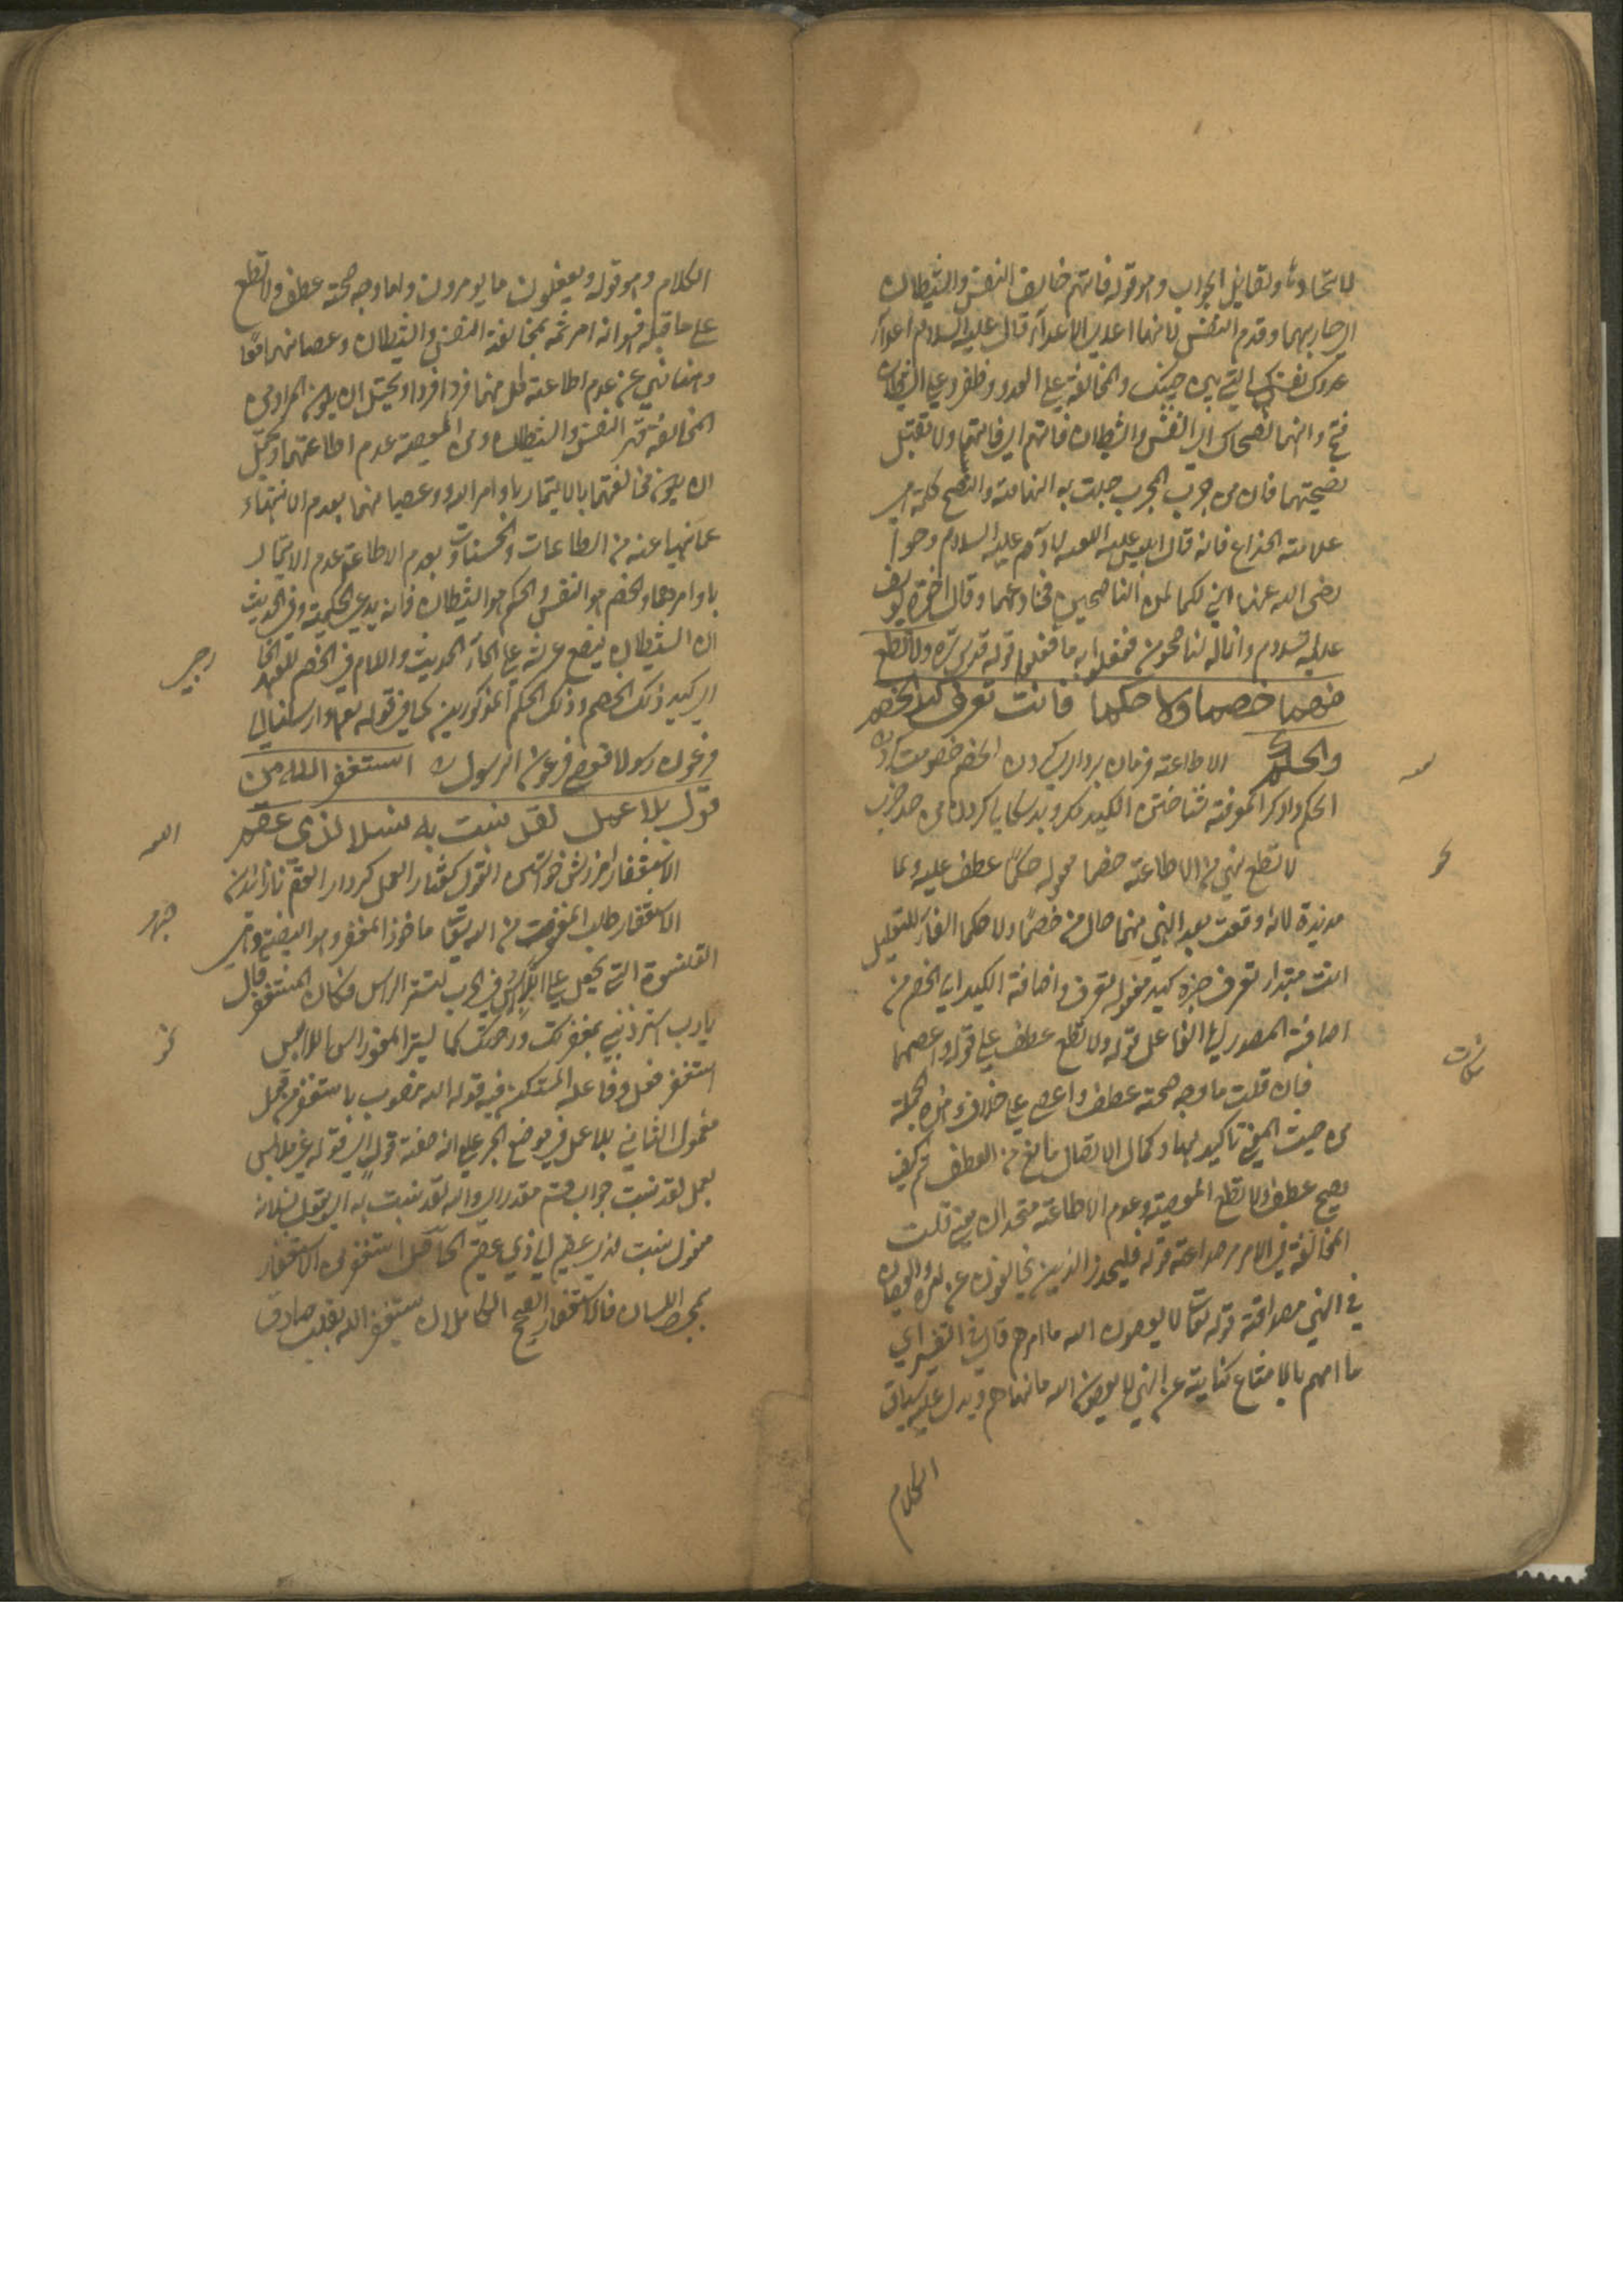 لاتحادها ولتقابل الجواب وهو قوله فاتهم خالف النفس والشيطان
اي حاربهما وقدم النفس لانها اعدى الاعداء قال عليه السلام اعدا
عدوك نفسك التي بين جنبيك والمخالفة على العدو وظفر وعلى الشيطان
فتح وانهما نصحاك اي النفس والشيطان فاتهم اي فاتهمهما ولا تقبل
نصيحتهما فان من جرب المجرب حلت به الندامة والنصح كلمة
علامته الخداع فانه قال ابليس عليه اللعنة لآدم عليه السلام وحوا
رضى الله عنها اني لكما لمن الناصحين فخادعهما وقال اخوة يوسف
عليه السلام وانا له لناصحون ففعلوا به ما فعلوا قوله قدس سره ولا تطع
منهما خصما ولا حكما فانت تعرف كيد الخصم
والحكم الاطاعة فرمان برداري كردن الخصم خصومت
الحكم داور المعرفة شناختن الكيد مكر وبدسكالي كردن من حد ضرب
لا تطع نهي من الاطاعة خصما مفعوله حكما عطف عليه وما
مزيدة لانه وقعت بعد النهي منهما حال من خصما ولا حكما الفاء للتعليل
انت مبتدا تعرف خبره كيد مفعوله تعرف واضافة الكيد الى الخصم من
اضافة المصدر الى الفاعل قوله ولا تطع عطف على قوله واعصهما
فان قلت ما وجه صحة عطف واعص على خالف وهذه الجملة
من حيث المعنى تاكيد لها وكمال الاتصال مانع من العطف ثم كيف
يصح عطف ولا تطع المعصية وعدم الاطاعة متحدان معنى قلت
المخالفة في الامر مصداقه قوله فليحذر الذين يخالفون عن امره والعصيان
في النهي مصداقه قوله تعالى لا يعصون الله ما امرهم قال في التفسير اي
ما امرهم بالامتناع كناية عن النهي لا يعصون الله ما نهاهم ويدل عليه سياق
الكلام
الكلام وهو قوله ويفعلون ما يومرون واما وجه صحة عطف ولا تطع
على ما قبله فهو انه امر ثمه بمخالفة النفس والشيطان وعصيانهما معا
وههنا نهي عن عدم اطاعة كل منهما فردا فردا ويحتمل ان يكون المراد من
المخالفة قهر النفس والشيطان ومن المعصية عدم اطاعتهما ويحتمل
ان يكون مخالفتهما بالايتمار باوامر الله وعصيانهما بعدم الانتهاء
عما نهيا عنه من الطاعات والحسنات وبعدم الاطاعة عدم الايتمار
باوامرهما والخصم هو النفس والحكم هو الشيطان فانه يدعي الحكمية وفي الحديث
ان الشيطان يضع عرشه على الماء الحديث واللام في الخصم للعهد
اي كيد ذلك الخصم وذلك الحكم المذكورين كما في قوله تعالى كما ارسلنا الى
فرعون رسولا فعصى فرعون الرسول استغفر الله من
قول بلا عمل لقد نسبت به نسلا لذي عقم
الاستغفار امرزش خواستن القول كفتار العمل كردار العقم نازائيدن
الاستغفار طلب المغفرة من الله تعالى ماخوذ المغفر وهو البيضة
القلنسوة التي يجعل على الراس في الحرب لتستر الراس فكان المستغفر قال
يا رب استر ذنبي بمغفرتك ورحمتك كما يستر المغفر راس اللابس
استغفر فعل وفاعله المستكن فيه قوله الله منصوب باستغفر محل
مفعول الثاني بلا عمل في موضع الجر على انه صفة قول اي قوله غير ملابس
بعمل لقد نسبت جواب قسم مقدر اي والله لقد نسبت به اي بقول نسلا
مفعول نسبت لذي عقم اي لذي عقيم الحاصل استغفر من الاستغفار
بمجرد اللسان فالاستغفار الصحيح الكامل ان يستغفر الله بقلب صادق